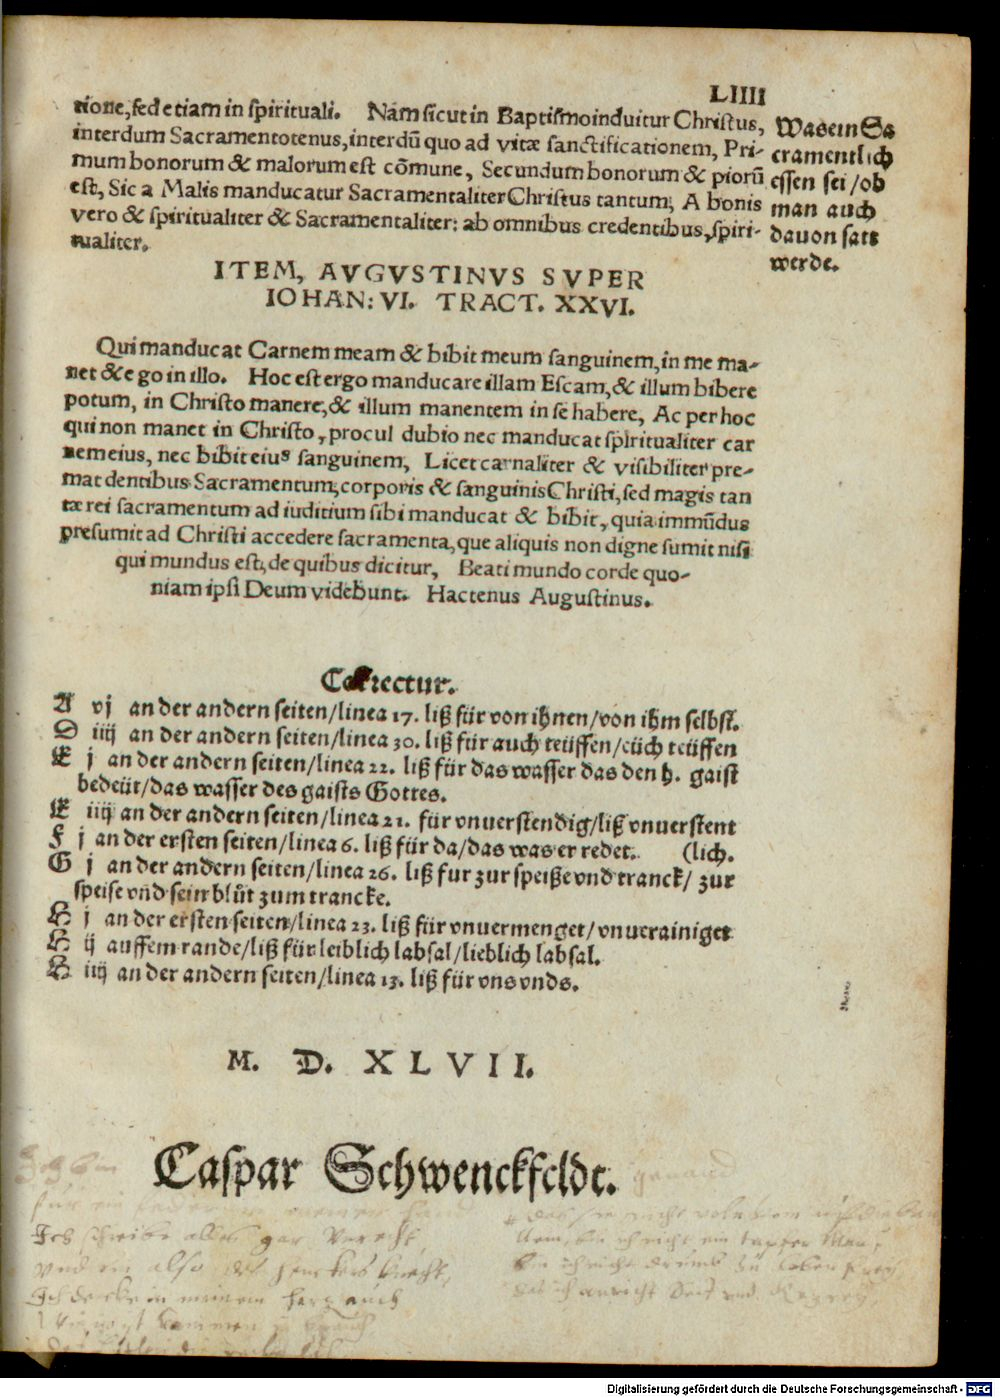 LIIII
tione, sed etiam in spirituali. Nam sicut in Baptismo induitur Christus,
interdum Sacramentotenus, interdū quo ad vitæ sanctificationem, Pri-
mum bonorum & malorum est cōmune, Secundum bonorum & piorū
est, Sic a Malis manducatur Sacramentaliter Christus tantum, A bonis
vero & spiritualiter & Sacramentaliter: ab omnibus credentibus, spiri-
tualiter.
Was ein Sa
cramentlich
essen sei/ob
man auch
dauon satt
werde.
ITEM, AVGVSTINVS SVPER
IOHAN: VI. TRACT. XXVI.
Qui manducat Carnem meam & bibit meum sanguinem, in me ma-
net & ego in illo. Hoc est ergo manducare illam Escam, & illum bibere
potum, in Christo manere, & illum manentem in se habere, Ac per hoc
qui non manet in Christo, procul dubio nec manducat spiritualiter car
nem eius, nec bibit eius sanguinem, Licet carnaliter & visibiliter pre-
mat dentibus Sacramentum, corporis & sanguinis Christi, sed magis tan
tæ rei sacramentum ad iuditium sibi manducat & bibit, quia immūdus
presumit ad Christi accedere sacramenta, que aliquis non digne sumit nisi
qui mundus est, de quibus dicitur, Beati mundo corde quo-
niam ipsi Deum videbunt. Hactenus Augustinus.
Correctur.
A vj an der andern seiten/linea 17. liß für von ihnen/von ihm selbst.
D iiij an der andern seiten/linea 30. liß für auch teüffen/eüch teüffen
E j an der andern seiten/linea 22. liß für das wasser das den h. gaist
bedeüt/das wasser des gaists Gottes.
E iiij an der andern seiten/linea 21. für vnuerstendig/liß vnuerstent
F j an der ersten seiten/linea 6. liß für da/das was er redet. (lich.
G j an der andern seiten/linea 26. liß fur zur speiße vnd tranck/ zur
speise vnd sein blůt zum trancke.
H j an der ersten seiten/linea 23. liß für vnuermenget/vnuerainiget
H ij auffem rande/liß für leiblich labsal/lieblich labsal.
H iiij an der andern seiten/linea 13. liß für vns vnds.
M. D. XLVII.
Caspar Schwenckfeldt.
Ich schreibe alles gar
Digitalisierung gefördert durch die Deutsche Forschungsgemeinschaft - DFG